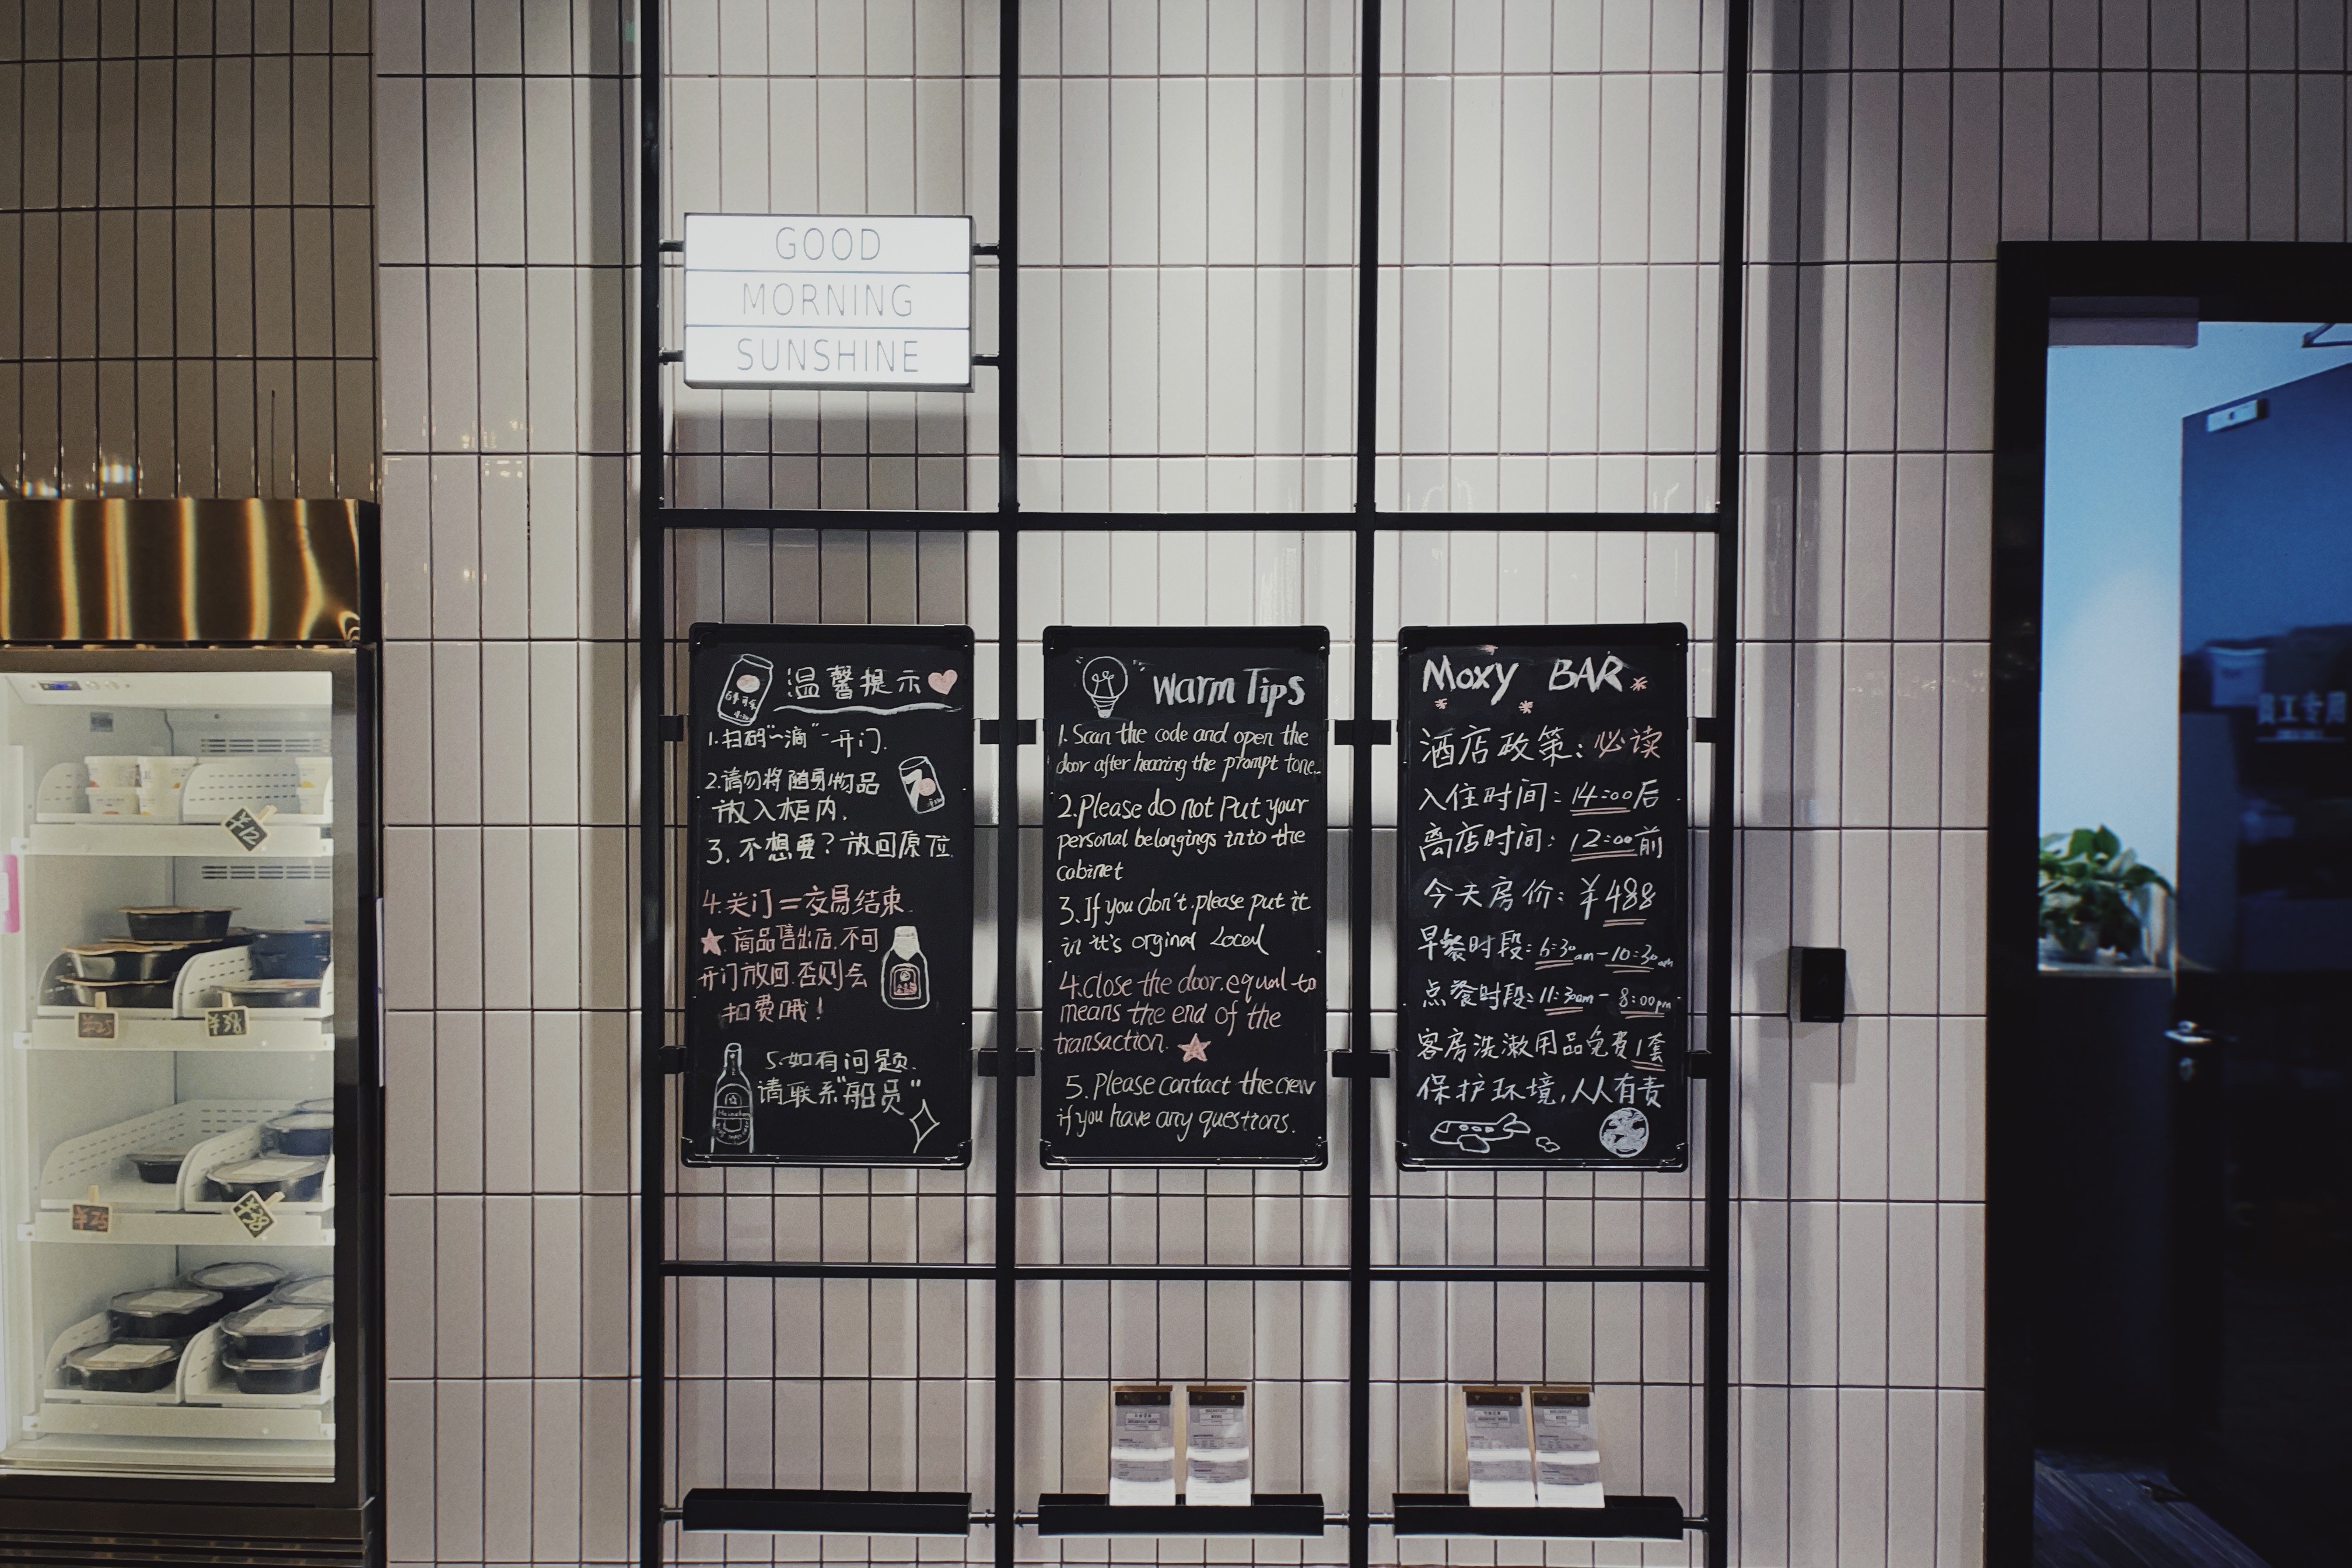 GOOD
MORNING
SUNSHINE
温馨提示
1.扫码“滴”开门.
2.请勿将随身物品
放入柜内.
3.不想要?放回原位
4.关门=交易结束.
★.商品售出后.不可
开门放回.否则会
扣费哦!
5.如有问题.
请联系“船员”
Heineken
Warm Tips
1.Scan the code and open the
door after hearing the prompt tone..
2.Please do not Put your
personal belongings into the
cabinet
3.If you don't.please put it
in it's orginal Local
4.Close the door.equal to
means the end of the
transaction. ★
5.Please contact the crew
if you have any questions.
Moxy BAR
酒店政策:必读
入住时间:14:00后
离店时间:12:00前
今天房价:¥488
早餐时段:6:30am-10:30am
点餐时段:11:30am-8:00pm
客房洗漱用品免费1套
保护环境,人人有责
¥12
¥25
¥38
¥25
¥38
员工专用